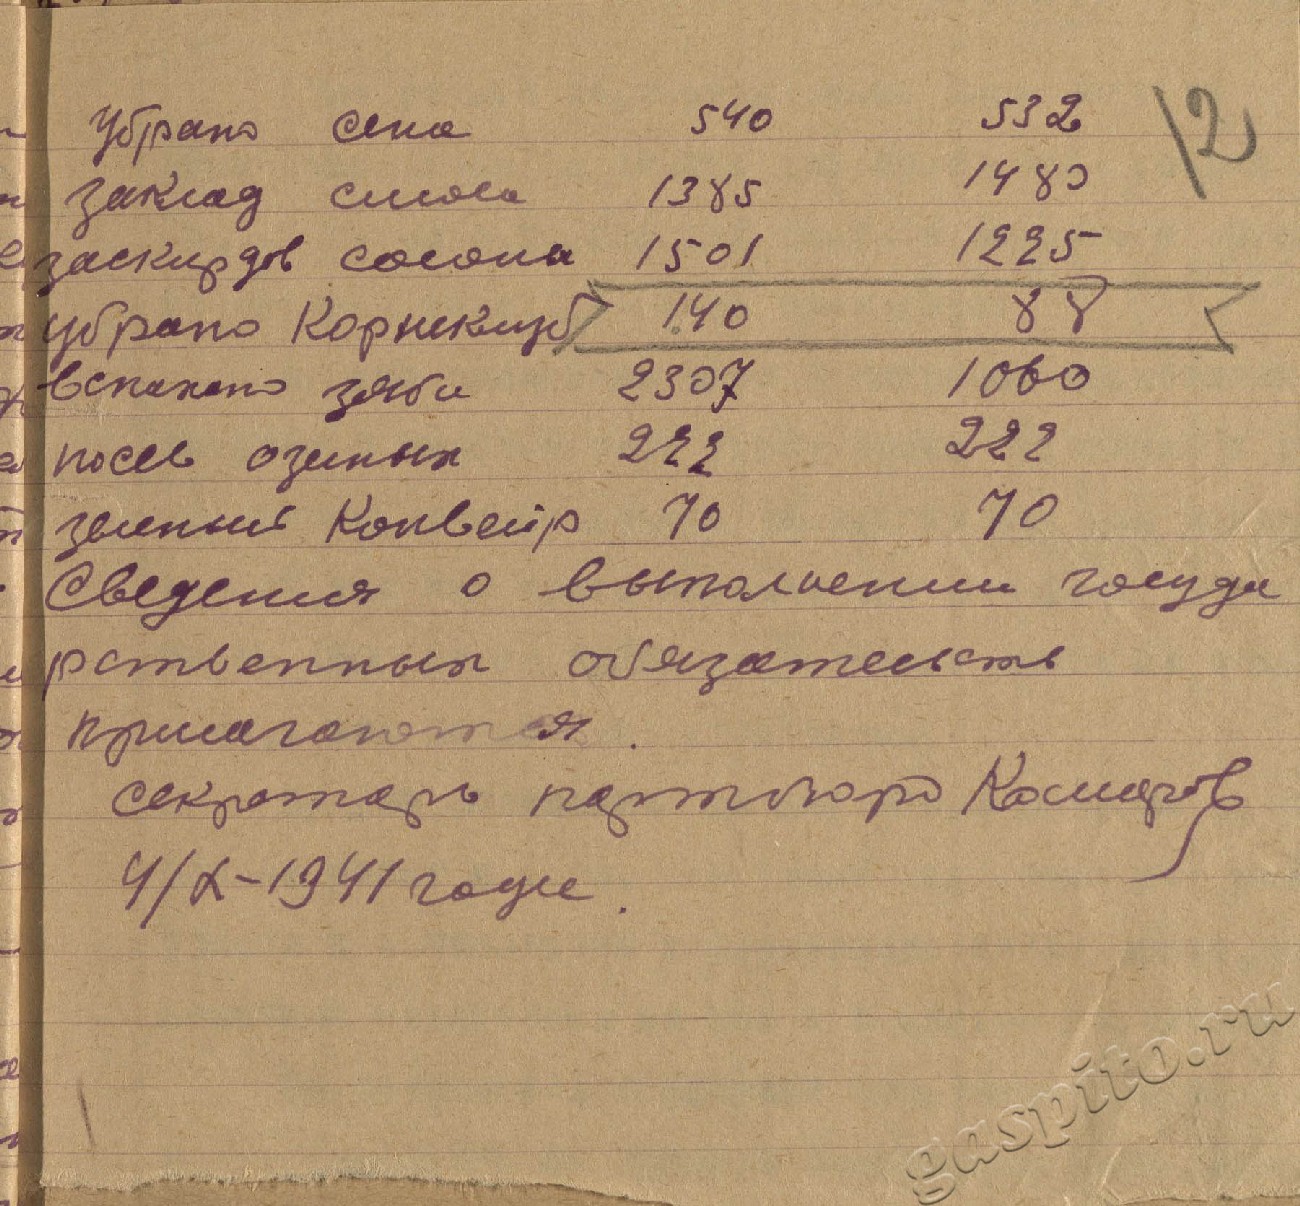 12
убрано сена 540 532
заклад силоса 1385 1480
заскирдов соломы 1501 1225
убрано Корнеклуб 140 88
вспахано зяби 2307 1060
посев озимых 222 222
зеленый Конвейр 70 70
Сведения о выполнении госуда
рственных обязательств
прилагаются.
секретарь партбюро Комаров
4/X-1941 года.
gaspito.ru